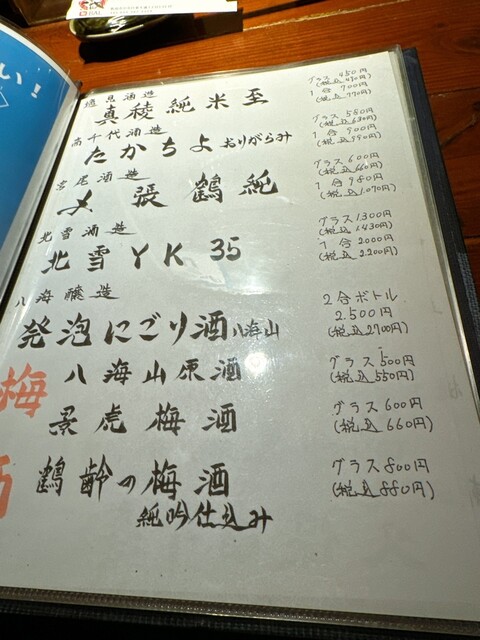 い!
逸見酒造
真稜純米至
グラス 450円
(税込490円)
1合 700円
(税込770円)
高千代酒造
たかちよおりがらみ
グラス 580円
(税込630円)
1合 900円
(税込990円)
宮尾酒造
〆張鶴純
グラス 600円
(税込660円)
1合 980円
(税込1,070円)
北雪酒造
北雪YK35
グラス1300円
(税込1,430円)
1合 2000円
(税込2,200円)
八海醸造
発泡にごり酒八海山
2合ボトル
2,500円
(税込2700円)
梅
八海山原酒
グラス500円
(税込550円)
景虎梅酒
グラス600円
(税込660円)
鶴齢の梅酒
純吟仕込み
グラス800円
(税込880円)